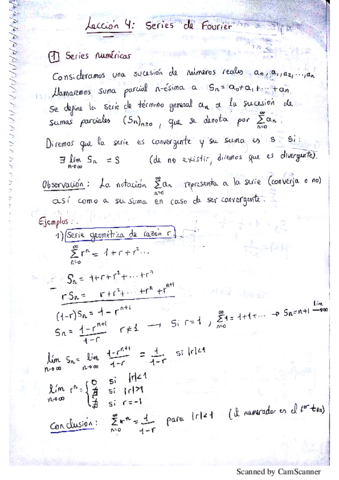 Lección 4: Series de Fourier
1 Series numéricas
Consideramos una sucesión de números reales a₀, a₁, a₂, ..., aₙ
Llamaremos suma parcial n-ésima a Sₙ = a₀ + a₁ + ... + aₙ
Se define la serie de término general aₙ a la sucesión de
sumas parciales (Sₙ)ₙ≥₀, que se denota por ∑_{n=0}^{∞} aₙ
Diremos que la serie es convergente y su suma es S si:
∃ lim_{n→∞} Sₙ = S (de no existir, diremos que es divergente).
Observación: La notación ∑_{n=0}^{∞} aₙ representa a la serie (converja o no)
así como a su suma en caso de ser convergente.
Ejemplos:
1) Serie geométrica de razón r
∑ rⁿ = 1 + r + r² ...
Sₙ = 1 + r + r² + ... + rⁿ
r Sₙ = r + r² + ... + rⁿ + rⁿ⁺¹
(1-r) Sₙ = 1 - rⁿ⁺¹
Sₙ = (1 - rⁿ⁺¹)/(1-r) r ≠ 1 → Si r = 1, ∑_{n=0}^{∞} 1 = 1 + 1 + ... → Sₙ = n+1 lim_{n→∞}
lim_{n→∞} Sₙ = lim_{n→∞} (1 - rⁿ⁺¹)/(1-r) = 1/(1-r) si |r|<1
lim_{n→∞} rⁿ = { 0 si |r|<1
∄ si |r|>1
∄ si r = -1
Conclusión: ∑_{n=0}^{∞} rⁿ = 1/(1-r) para |r|<1 (el numerador es el 1er)
Scanned by CamScanner